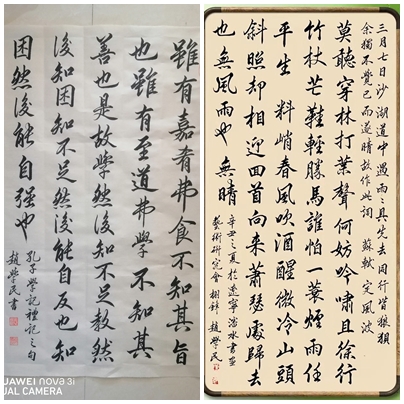 雖有嘉肴弗食不知其旨
也雖有至道弗學不知其
善也是故學然後知不足教然
後知困知不足然後能自反也知
困然後能自强也
孔子學記禮記之句
趙學民書
三月七日沙湖道中遇雨雨具先去同行皆狼狽
余獨不覺已而遂晴故作此詞 蘇軾 定風波
莫聽穿林打葉聲何妨吟嘯且徐行
竹杖芒鞋輕勝馬誰怕一蓑煙雨任
平生料峭春風吹酒醒微冷山頭
斜照却相迎回首向來蕭瑟處歸去
也無風雨也無晴
辛丑之夏於遼寧 水書画
藝術研究會 趙學民
AWEI nova 3i
UAL CAMERA